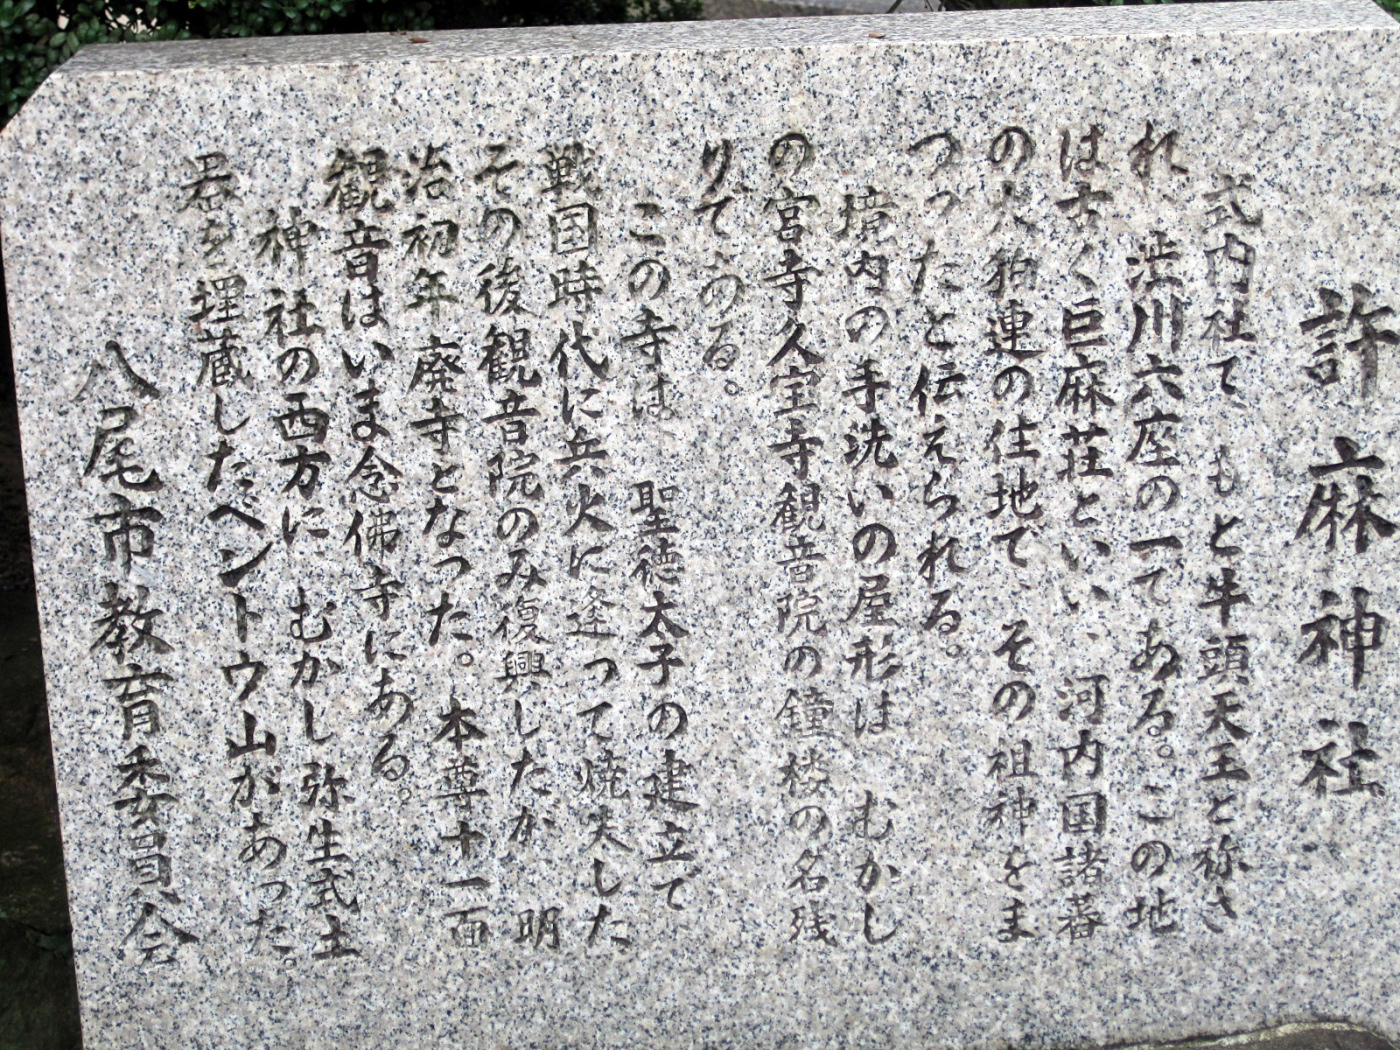 許麻神社
式内社で もと牛頭天王と称さ
れ、渋川六座の一である。この地
は古く巨麻荘といい、河内国諸蕃
の大狛連の住地で、その祖神をま
つったと伝えられる。
境内の手洗いの屋形は むかし
の宮寺久宝寺観音院の鐘楼の名残
りである。
この寺は 聖徳太子の建立で
戦国時代に兵火に逢って焼失した
その後観音院のみ復興したが 明
治初年廃寺となった。本尊十一面
観音はいま念佛寺にある。
神社の西方に むかし弥生式土
器を埋蔵したベントウ山があった。
八尾市教育委員会